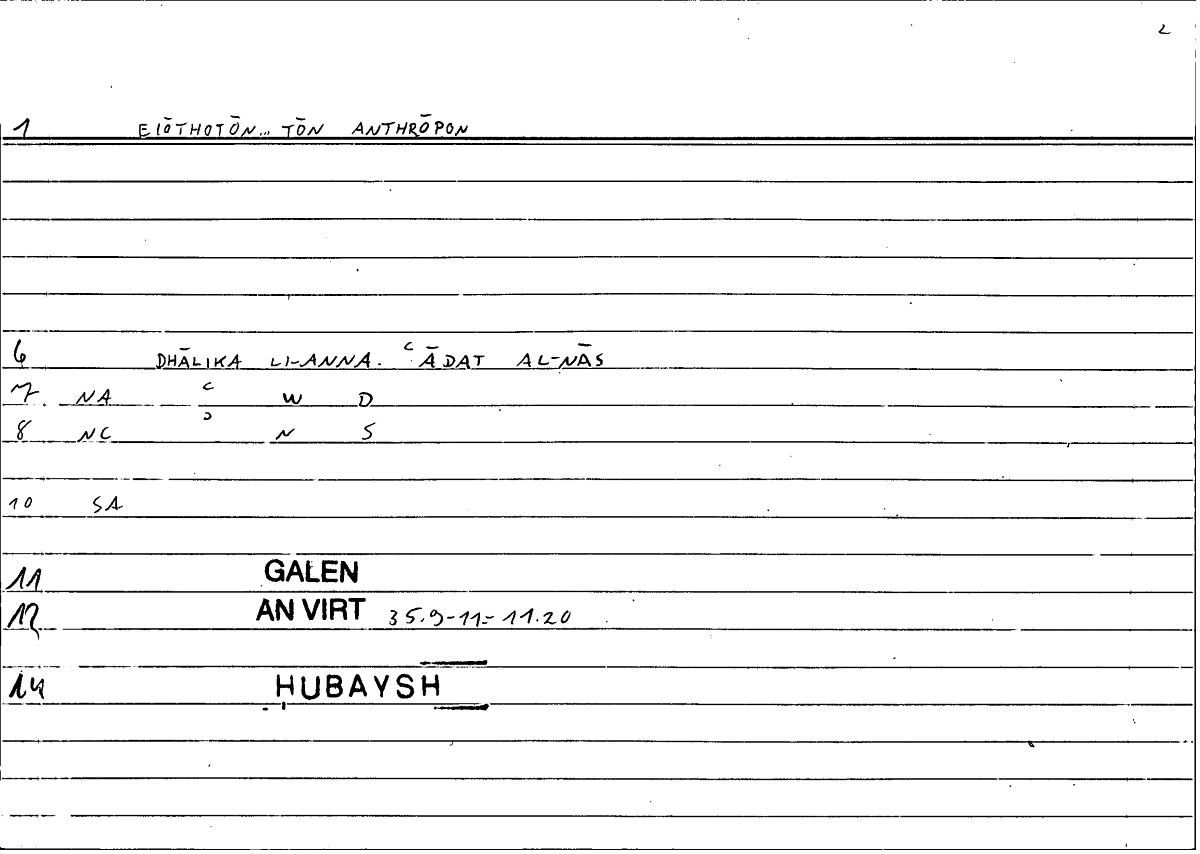 2
1 EIŌTHOTŌN... TŌN ANTHRŌPON
6 DHĀLIKA LI-ANNA. ʿĀDAT AL-NĀS
7. NA ʿ W D
8 NC ʾ N S
10 SA
11 GALEN
12 AN VIRT 35.9-11 = 11.20
14 HUBAYSH